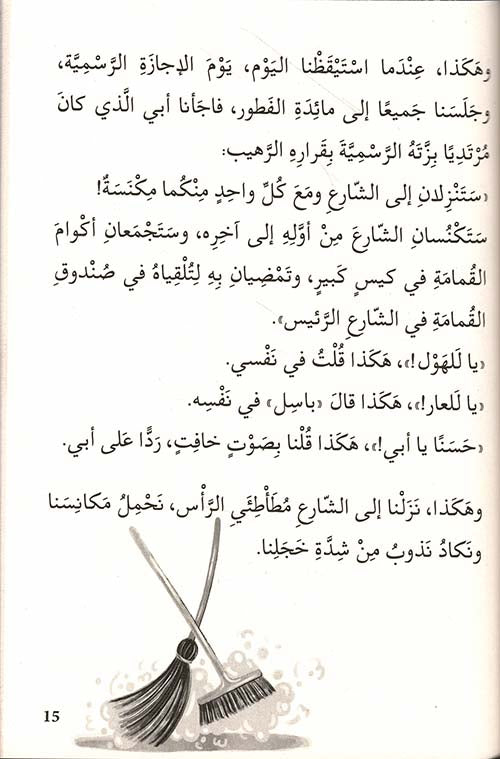 وهَكَذا، عِنْدَما اسْتَيْقَظْنا اليَوْم، يَوْمَ الإجازَةِ الرَّسْمِيَّة،
وجَلَسَنا جَميعًا إلى مائِدَةِ الفَطور، فاجَأنا أبي الَّذي كانَ
مُرْتَدِيًا بِزَّتَهُ الرَّسْمِيَّةَ بِقَرارِهِ الرَّهيب:
«سَتَنْزِلانِ إلى الشّارِعِ ومَعَ كُلِّ واحِدٍ مِنْكُما مِكْنَسَةٌ!
سَتَكْنُسانِ الشّارِعَ مِنْ أوَّلِهِ إلى آخِرِه، وسَتَجْمَعانِ أكْوامَ
القُمامَةِ في كيسٍ كَبيرٍ، وتَمْضِيانِ بِهِ لِتُلْقِياهُ في صُنْدوقِ
القُمامَةِ في الشّارِعِ الرَّئيس».
«يا لَلهَوْل!»، هَكَذا قُلْتُ في نَفْسي.
«يا لَلعار!»، هَكَذا قالَ «باسِل» في نَفْسِه.
«حَسَنًا يا أبي!»، هَكَذا قُلْنا بِصَوْتٍ خافِتٍ، رَدًّا عَلى أبي.
وهَكَذا، نَزَلْنا إلى الشّارِعِ مُطَأْطِئَيِ الرَّأْس، نَحْمِلُ مَكانِسَنا
ونَكادُ نَذوبُ مِنْ شِدَّةِ خَجَلِنا.
15